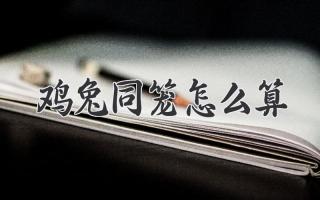 鸡兔同笼怎么算